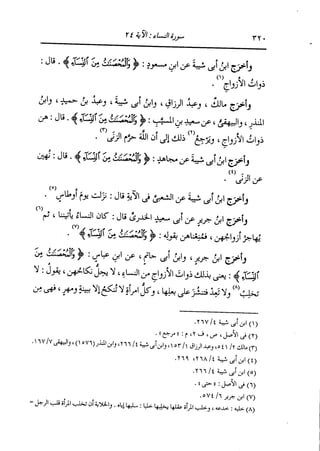 ٣٢٠ سورة النساء : الآية ٢٤
وأخرج ابنُ أبى شيبةَ عن ابنِ مسعودٍ : ﴿ وَالْمُحْصَنَاتُ مِنَ النِّسَاءِ ﴾ . قال :
ذواتُ الأزواجِ (١) .
وأخرَج مالكٌ ، وعبدُ الرزاقِ ، وابنُ أبى شيبةَ ، وعبدُ بنُ حميدٍ ، وابنُ
المنذرِ ، والبيهقىُّ ، عن سعيدِ بنِ المسيَّبِ : ﴿ وَالْمُحْصَنَاتُ مِنَ النِّسَاءِ ﴾ . قال : هن
ذواتُ الأزواجِ ، ويَرجِعُ (٢) ذلك إلى أن اللَّهَ حرَّم الزنَى (٣) .
وأخرَج ابنُ أبى شيبةَ عن مجاهدٍ : ﴿ وَالْمُحْصَنَاتُ مِنَ النِّسَاءِ ﴾ . قال : نُهِين
عن الزنَى (٤) .
وأخرَج ابنُ أبى شيبةَ عن الشعبىِّ فى الآيةِ قال : نزَلت يومَ أوطاسٍ (٥) .
وأخرَج ابنُ جريرٍ عن أبى سعيدٍ الخدرىِّ قال : كان النساءُ يأتينَنا ، ثم (٦)
يهاجرُ أزواجُهن ، فمُنِعناهن بقولِه : ﴿ وَالْمُحْصَنَاتُ مِنَ النِّسَاءِ ﴾ (٧) .
وأخرَج ابنُ جريرٍ ، وابنُ أبى حاتمٍ ، عن ابنِ عباسٍ : ﴿ وَالْمُحْصَنَاتُ مِنَ
النِّسَاءِ ﴾ : يعنى بذلك ذواتِ الأزواجِ من النساءِ ، لا يَحِلُّ نكاحُهن ، يقولُ : لا
تَخلُبْ (٨) ولا تَعِدْ فتَنشُزَ على بعلِها ، وكلُّ امرأةٍ لا تُنكَحُ إلا ببينةٍ ومهرٍ ، فهى من
(١) ابن أبى شيبة ٤/ ٢٦٧.
(٢) فى الأصل ، ص ، ف ٢، م : « مرجع » .
(٣) مالك ٢/ ٥٤١، وعبد الرزاق ١/ ١٥٣، وابن أبى شيبة ٤/ ٢٦٦، وابن المنذر (١٥٧٦) ، والبيهقى ٧/ ١٦٧.
(٤) ابن أبى شيبة ٤/ ٢٦٨، ٢٦٩.
(٥) ابن أبى شيبة ٤/ ٢٦٦.
(٦) فى الأصل : « حتى » .
(٧) ابن جرير ٦/ ٥٧٤.
(٨) خلبه : خدعه ، وخلب المرأة عقلها يخلبها خلبا : سلبها إياه . والخلابة أن تخلب المرأة قلب الرجل =